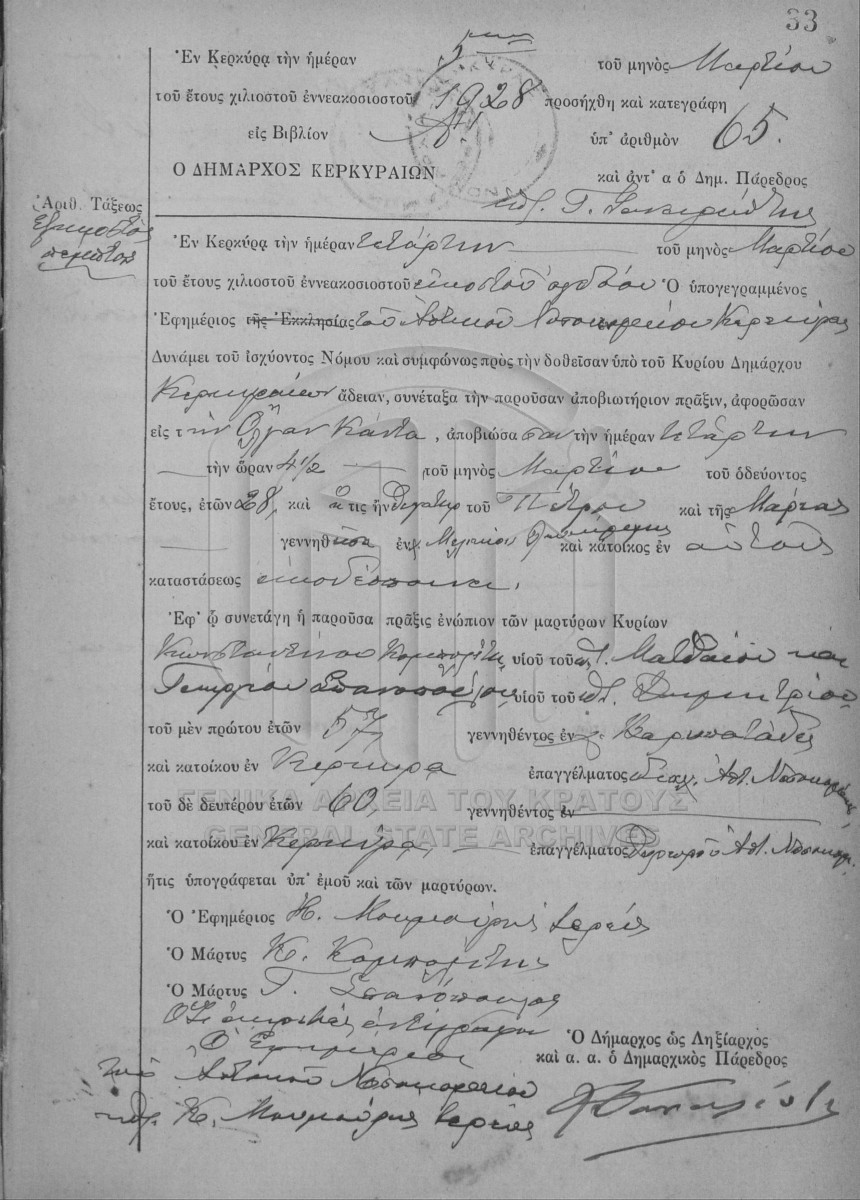 33
Ἐν Κερκύρᾳ τὴν ἡμέραν 5ην τοῦ μηνὸς Μαρτίου
τοῦ ἔτους χιλιοστοῦ ἐννεακοσιοστοῦ 1928 προσήχθη καὶ κατεγράφη
εἰς Βιβλίον Α! ὑπ' ἀριθμὸν 65.
Ο ΔΗΜΑΡΧΟΣ ΚΕΡΚΥΡΑΙΩΝ καὶ ἀντ' α ὁ Δημ. Πάρεδρος
Ἀριθ. Τάξεως
ἑξηκοστὸς
πέμπτος
Ἐν Κερκύρᾳ τὴν ἡμέραν τετάρτην τοῦ μηνὸς Μαρτίου
τοῦ ἔτους χιλιοστοῦ ἐννεακοσιοστοῦ εἰκοστοῦ ὀγδόου Ὁ ὑπογεγραμμένος
Ἐφημέριος τῆς Ἐκκλησίας τοῦ Ἀστικοῦ Νοσοκομείου Κερκύρας
Δυνάμει τοῦ ἰσχύοντος Νόμου καὶ συμφώνως πρὸς τὴν δοθεῖσαν ὑπὸ τοῦ Κυρίου Δημάρχου
Κερκυραίων ἄδειαν, συνέταξα τὴν παροῦσαν ἀποβιωτήριον πρᾶξιν, ἀφορῶσαν
εἰς τὴν Ὄλγαν Κάντα, ἀποβιώσασαν τὴν ἡμέραν τετάρτην
τὴν ὥραν 4 1/2 τοῦ μηνὸς Μαρτίου τοῦ ὁδεύοντος
ἔτους, ἐτῶν 28, καὶ ἅτις ἦν θυγάτηρ τοῦ Πέτρου καὶ τῆς Μαρίας
γεννηθεῖσα ἐν καὶ κάτοικος ἐν αὐτόθι
καταστάσεως οἰκοδέσποινα.
Ἐφ' ᾧ συνετάγη ἡ παροῦσα πρᾶξις ἐνώπιον τῶν μαρτύρων Κυρίων
Κωνσταντίνου Κομπολίτη υἱοῦ τοῦ π. Ματθαίου καὶ
Γεωργίου Σπανοπούλου υἱοῦ τοῦ π. Δημητρίου
τοῦ μὲν πρώτου ἐτῶν 57 γεννηθέντος ἐν Καρουσάδες
καὶ κατοίκου ἐν Κέρκυρα ἐπαγγέλματος Ἀστ. Νοσοκομείου
τοῦ δὲ δευτέρου ἐτῶν 60, γεννηθέντος ἐν
καὶ κατοίκου ἐν Κερκύρα, ἐπαγγέλματος θυρωροῦ Ἀστ. Νοσοκομ.
ἥτις ὑπογράφεται ὑπ' ἐμοῦ καὶ τῶν μαρτύρων.
ΓΕΝΙΚΑ ΑΡΧΕΙΑ ΤΟΥ ΚΡΑΤΟΥΣ
GENERAL STATE ARCHIVES
Ὁ Ἐφημέριος Κ. Μουμούρης ἱερεύς
Ὁ Μάρτυς Κ. Κομπολίτης
Ὁ Μάρτυς Γ. Σπανόπουλος
ἀντίγραφον
Ὁ Ἐφημέριος
τοῦ Ἀστικοῦ Νοσοκομείου
Κ. Μουμούρης ἱερεύς
Ὁ Δήμαρχος ὡς Ληξίαρχος
καὶ α. α. ὁ Δημαρχικὸς Πάρεδρος